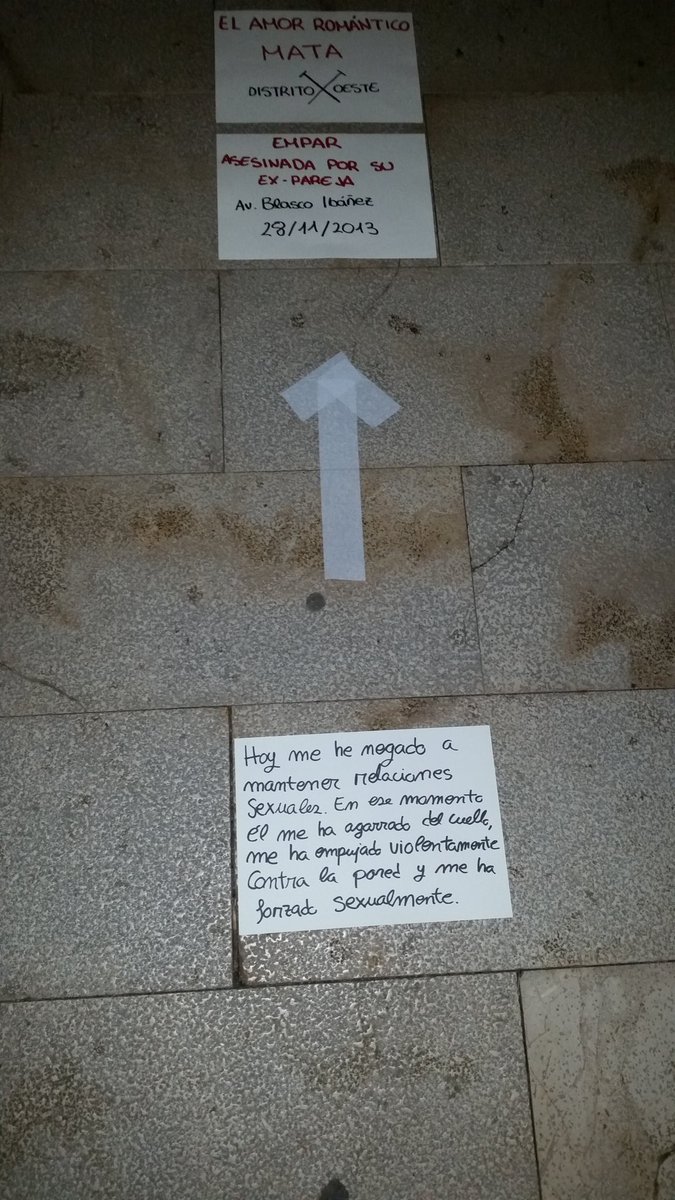 EL AMOR ROMÁNTICO
MATA
DISTRITO OESTE
EMPAR
ASESINADA POR SU
EX-PAREJA
Av. Blasco Ibáñez
28/11/2013
Hoy me he negado a
mantener relaciones
sexuales. En ese momento
él me ha agarrado del cuello,
me ha empujado violentamente
contra la pared y me ha
forzado sexualmente.